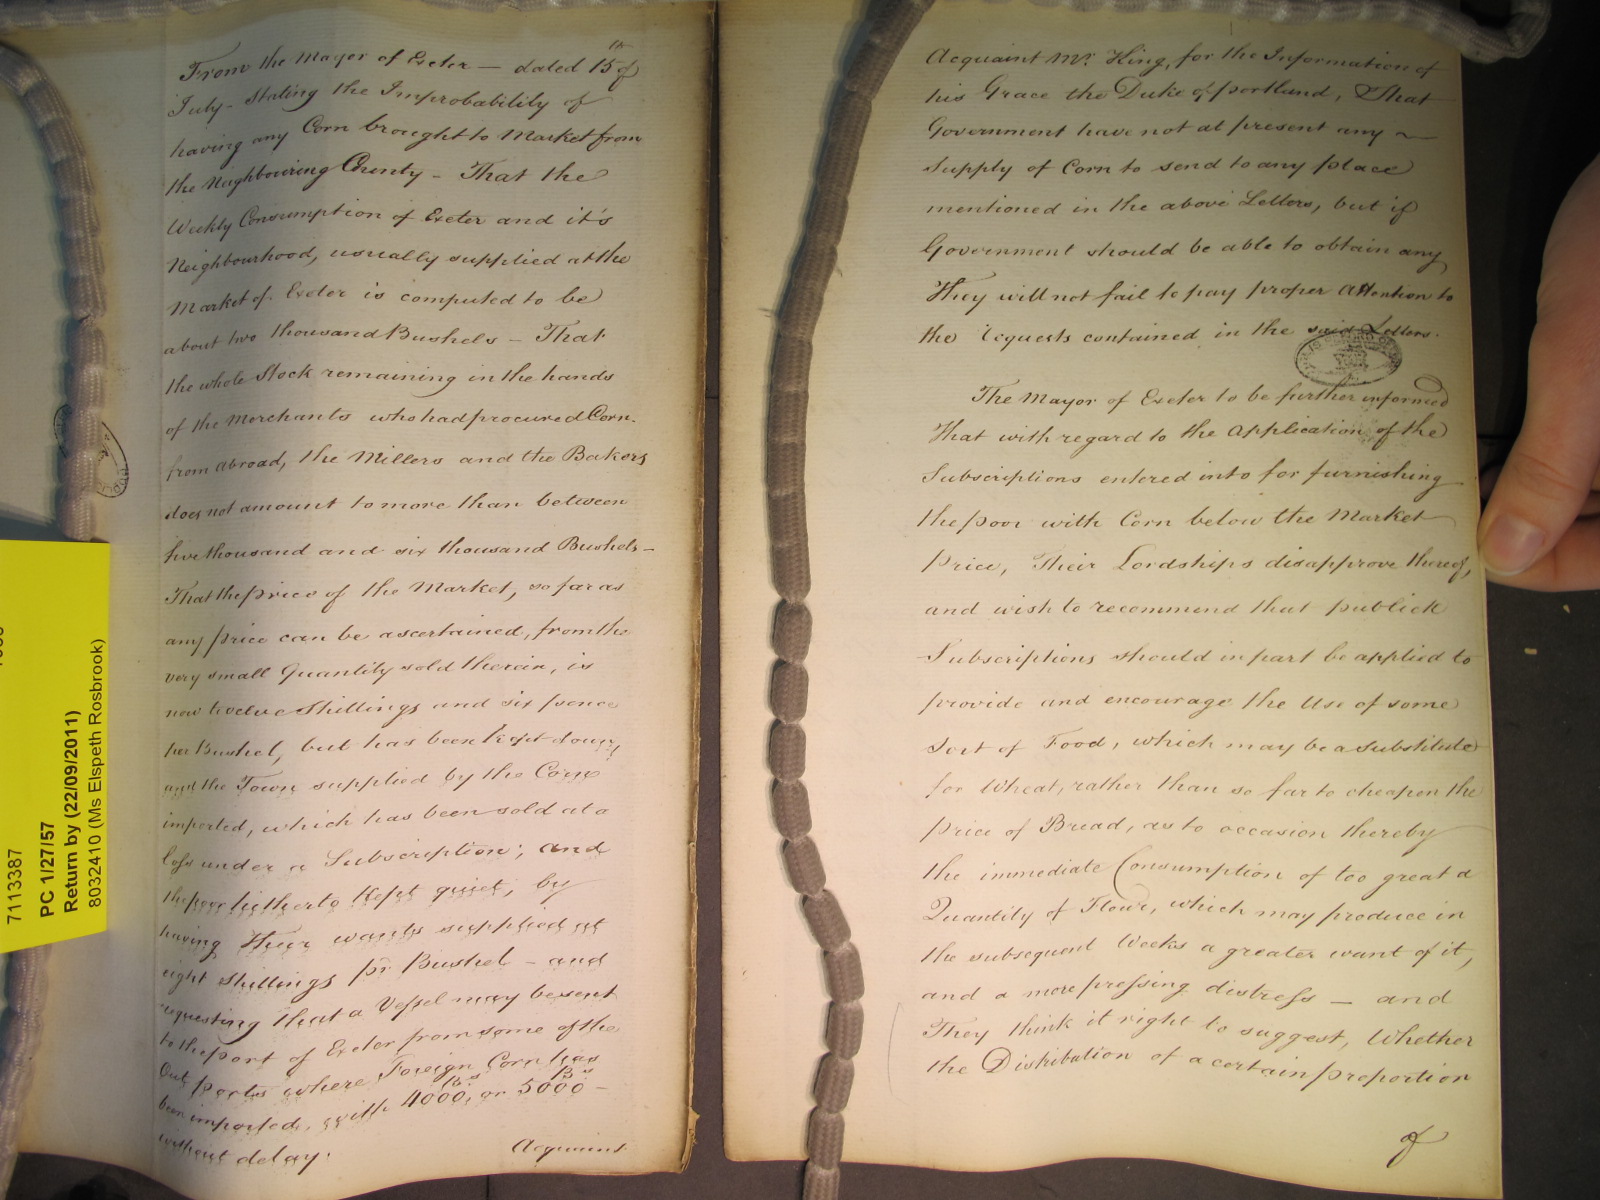 From the Mayor of Exeter — dated 15th of
July - Stating the Improbability of
having any Corn brought to Market from
the Neighbouring County - That the
Weekly Consumption of Exeter and it's
Neighbourhood, usually supplied at the
Market of Exeter is computed to be
about two thousand Bushels - That
the whole Stock remaining in the hands
of the Merchants who had procured Corn
from abroad, the Millers and the Bakers
does not amount to more than between
five thousand and six thousand Bushels -
That the price of the Market, so far as
any price can be ascertained, from the
very small Quantity sold therein, is
now twelve Shillings and six pence
per Bushel, but has been kept down,
and the Town supplied by the Corn
imported, which has been sold at a
loss under a Subscription; and
the poor hitherto kept quiet, by
having their wants supplied at
eight Shillings pr Bushel - and
requesting that a Vessel may be sent
to the port of Exeter from some of the
Out Ports where Foreign Corn has
been imported, with 4000 Bs. or 5000 Bs -
without delay.
Acquaint
Acquaint Mr. King, for the Information of
his Grace the Duke of Portland, That
Government have not at present any
Supply of Corn to send to any place
mentioned in the above Letters, but if
Government should be able to obtain any
They will not fail to pay proper Attention to
the requests contained in the said Letters.
The Mayor of Exeter to be further informed
That with regard to the Application of the
Subscriptions entered into for furnishing
the poor with Corn below the Market
Price, Their Lordships disapprove thereof,
and wish to recommend that publick
Subscriptions should in part be applied to
provide and encourage the Use of some
Sort of Food, which may be a substitute
for Wheat, rather than so far to cheapen the
price of Bread, as to occasion thereby
the immediate Consumption of too great a
Quantity of Flour, which may produce in
the subsequent Weeks a greater want of it,
and a more pressing distress — and
They think it right to suggest, Whether
the Distribution of a certain proportion
of
7113387
PC 1/27/57
Return by (22/09/2011)
8032410 (Ms Elspeth Rosbrook)